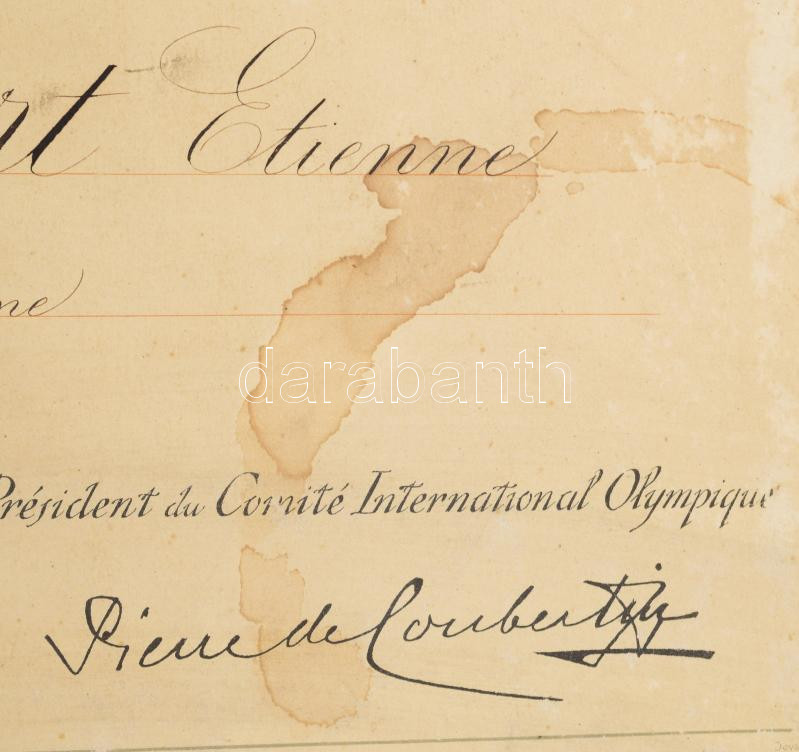 rt Etienne
ne
darabanth
Président du Comité International Olympique
Pierre de Coubertin